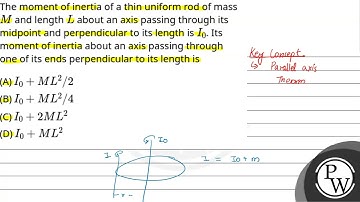 The moment of inertia of a thin uniform rod of mass
M and length L about an axis passing through its
midpoint and perpendicular to its length is I₀. Its
moment of inertia about an axis passing through
one of its ends perpendicular to its length is
(A) I₀ + ML²/2
(B) I₀ + ML²/4
(C) I₀ + 2ML²
(D) I₀ + ML²
Key Concept.
↳ Parallel axis
Theorem
I
I₀
I = I₀ + m
P
W